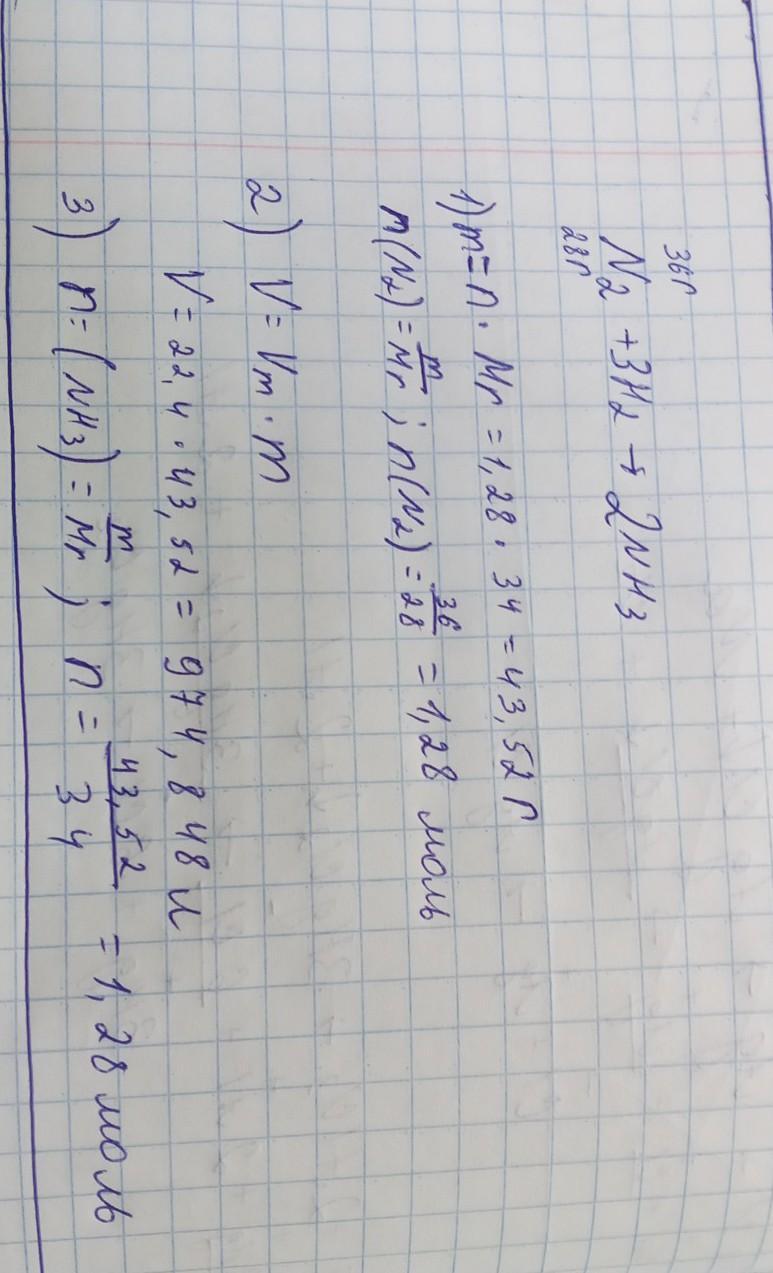 36г
N₂ + 3H₂ → 2NH₃
28г
1) m = n · Mr = 1,28 · 34 = 43,52 г
n(N₂) = m/Mr ; n(N₂) = 36/28 = 1,28 моль
2) V = Vm · m
V = 22,4 · 43,52 = 974,848 л
3) n = (NH₃) = m/Mr ; n = 43,52/34 = 1,28 моль